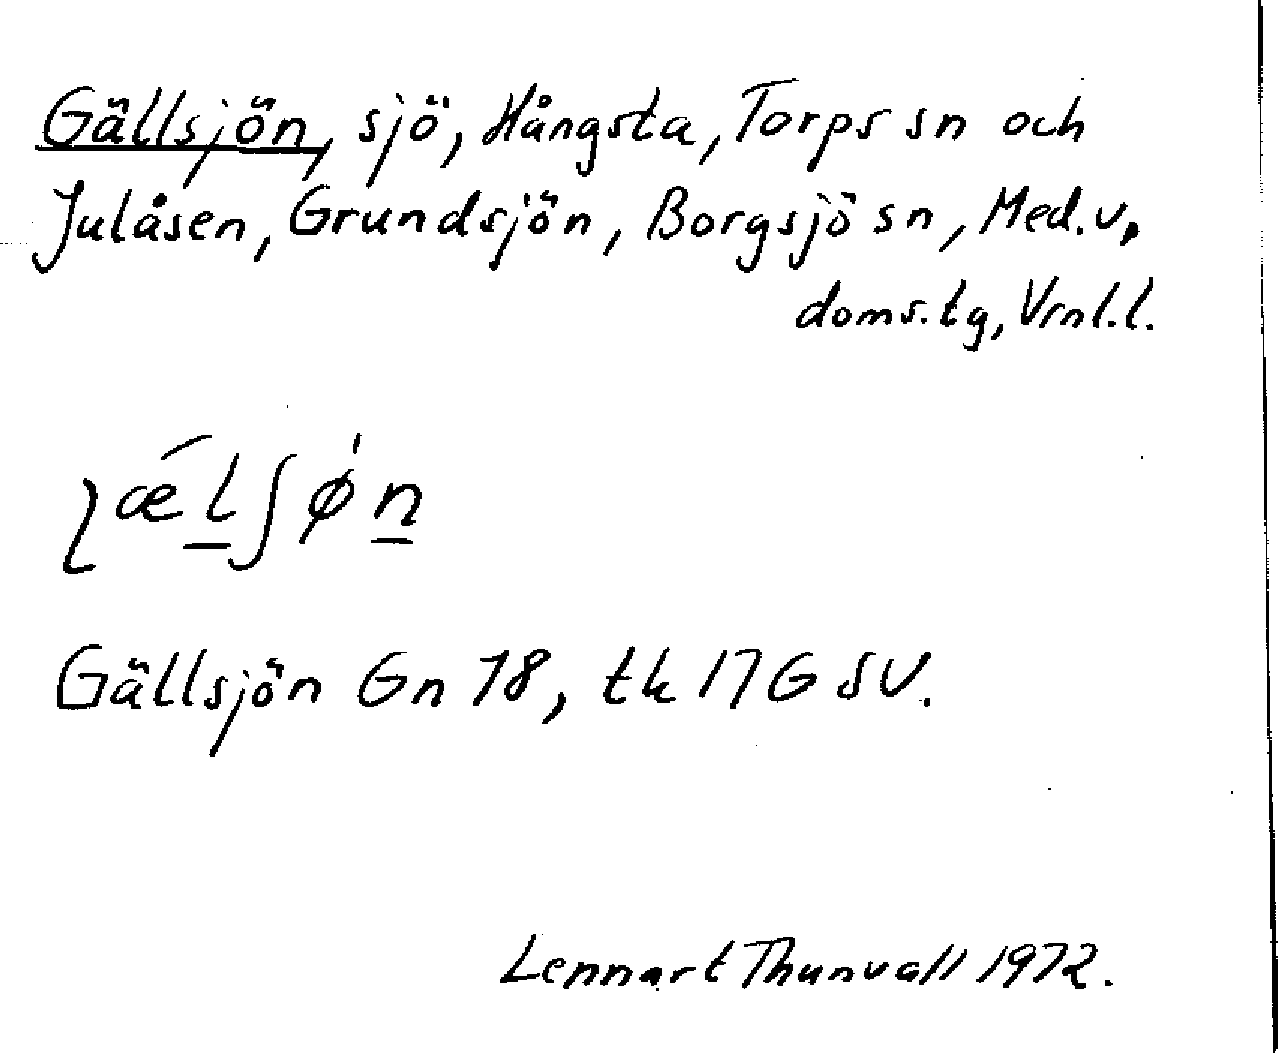 Gällsjön, sjö, Hångsta, Torps sn och
Julåsen, Grundsjön, Borgsjö sn, Med.v,
doms.tg, Vrnl.l.
ʅǽl̲ʃø̍n̲
Gällsjön Gn 78, tk 17G SV.
Lennart Thunvall 1972.